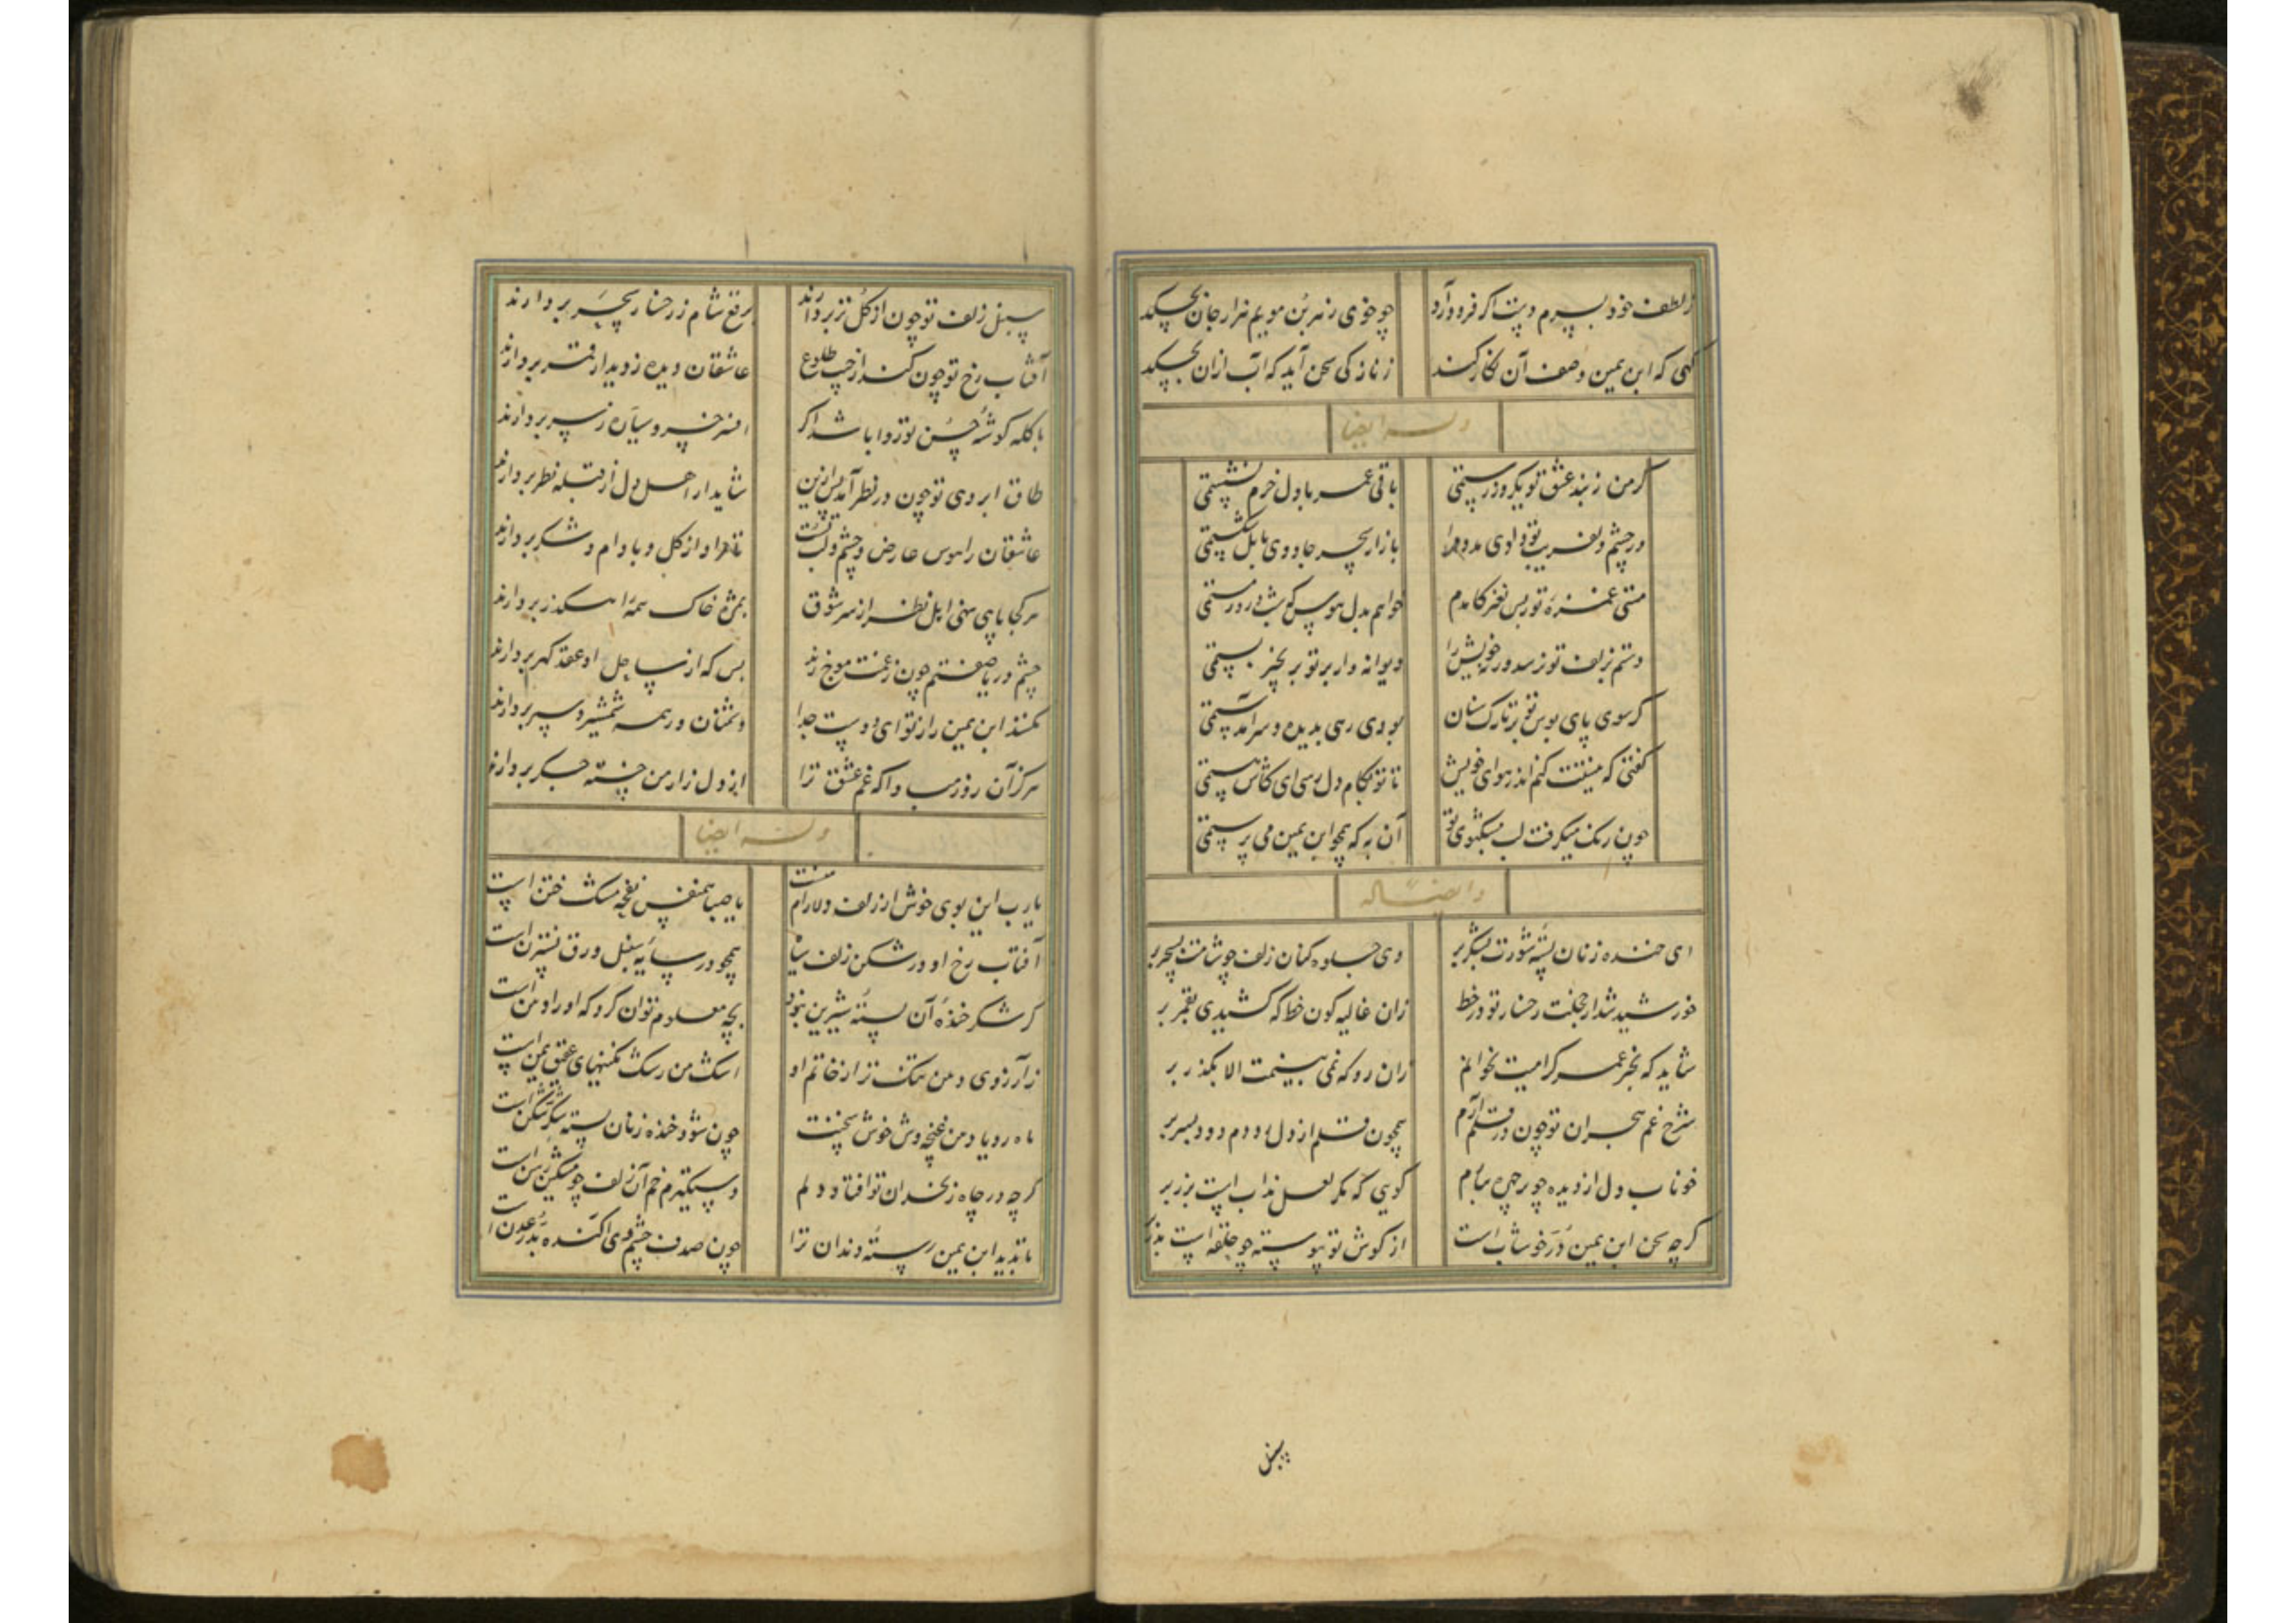 ز لطف خود بسرم دست اکر فرود آرد چو خوی ز هر بن مویم هزار جان بچکد
کهی که ابن یمین وصف آن نکار کند ز نازکی سخن آید که آب ازان بچکد
وله ایضا
کر من ز بند عشق تو یکروز رستمی باقی عمر با دل خرم نشستمی
ور چشم دلفریب تو دادی مدد مرا بازار سحر جادوی بابل شکستمی
مستی غمزه تو بس نغز کامدم خواهم بدل هوس که شب و روز مستمی
دستم بزلف تو نرسد ور خویش را دیوانه وار بر تو بزنجیر بستمی
کر سوی پای بوس تو بر تارک سنان بودی رهی بدیده و سر آمدستمی
کفتی که نیستت کنم اندر هوای خویش تا تو بکام دل رسی ای کاش هستمی
چون رنک میکرفت لب میکشوی تو آن به که همچو ابن یمین می پرستمی
و ایضا له
ای خنده زنان پسته شورت بشکر بر وی جلوه کنان زلف چو شامت بسحر بر
خورشید شد از خجلت رخسار تو در خط زان غالیه کون خط که کشیدی بقمر بر
شاید که بجز عمر کرامیت نخوانم زان رو که نمی بینمت الا بکذر بر
شرح غم هجران تو چون در قلم آرم همچون قلم از دل رودم دود بسر بر
خوناب دل از دیده چو بر چهره بیارم کویی که مکر لعل مذاب است بزر بر
کرچه سخن ابن یمین در خوشاب است از کوش تو پیوسته چو حلقه است بدر بر
سنبل
سنبل زلف تو چون از کل تر بردارند برقع شام ز رخسار سحر بردارند
آفتاب رخ تو چون کند از جیب طلوع عاشقان دیده ز دیدار قمر بردارند
با کله کوشه حسن تو روا باشد اکر افسر خسرو سیاره ز سر بردارند
طاق ابروی تو چون در نظر آمد پس ازین شاید ار اهل دل از قبله نظر بردارند
عاشقان را هوس عارض و چشم و لب تست تا مراد از کل و بادام و شکر بردارند
هر کجا پای نهی اهل نظر از سر شوق بمژه خاک همه راهکذر بردارند
چشم دریا صفتم چون ز غمت موج زند بس که از ساحل او عقد کهر بردارند
نکند ابن یمین راز تو ای دوست جدا دشمنان ور همه شمشیر و سپر بردارند
هرکز آن روز مبادا که غم عشق ترا از دل زار من خسته جکر بردارند
وله ایضا
یارب این بوی خوش از زلف دلارام منست یا صبا همنفس نفحه مشک ختن است
آفتاب رخ او در شکن زلف سیاه همچو در سایه سنبل ورق نسترن است
کر شکر خنده آن پسته شیرین نبود بچه معلوم توان کرد که او را دهن است
ز آرزوی دهن تنک تر از خاتم او اشک من رشک نکینهای عقیق یمن است
ماه رویا دهن غنچه وش خوش سخنت چون شود خنده زنان پسته شکر شکن است
کرچه در چاه زنخدان تو افتاد دلم دستکیرم خم آن زلف چو مشکین رسن است
تا بدید ابن یمین رسته دندان ترا چون صدف چشم وی آکنده بدر عدن است